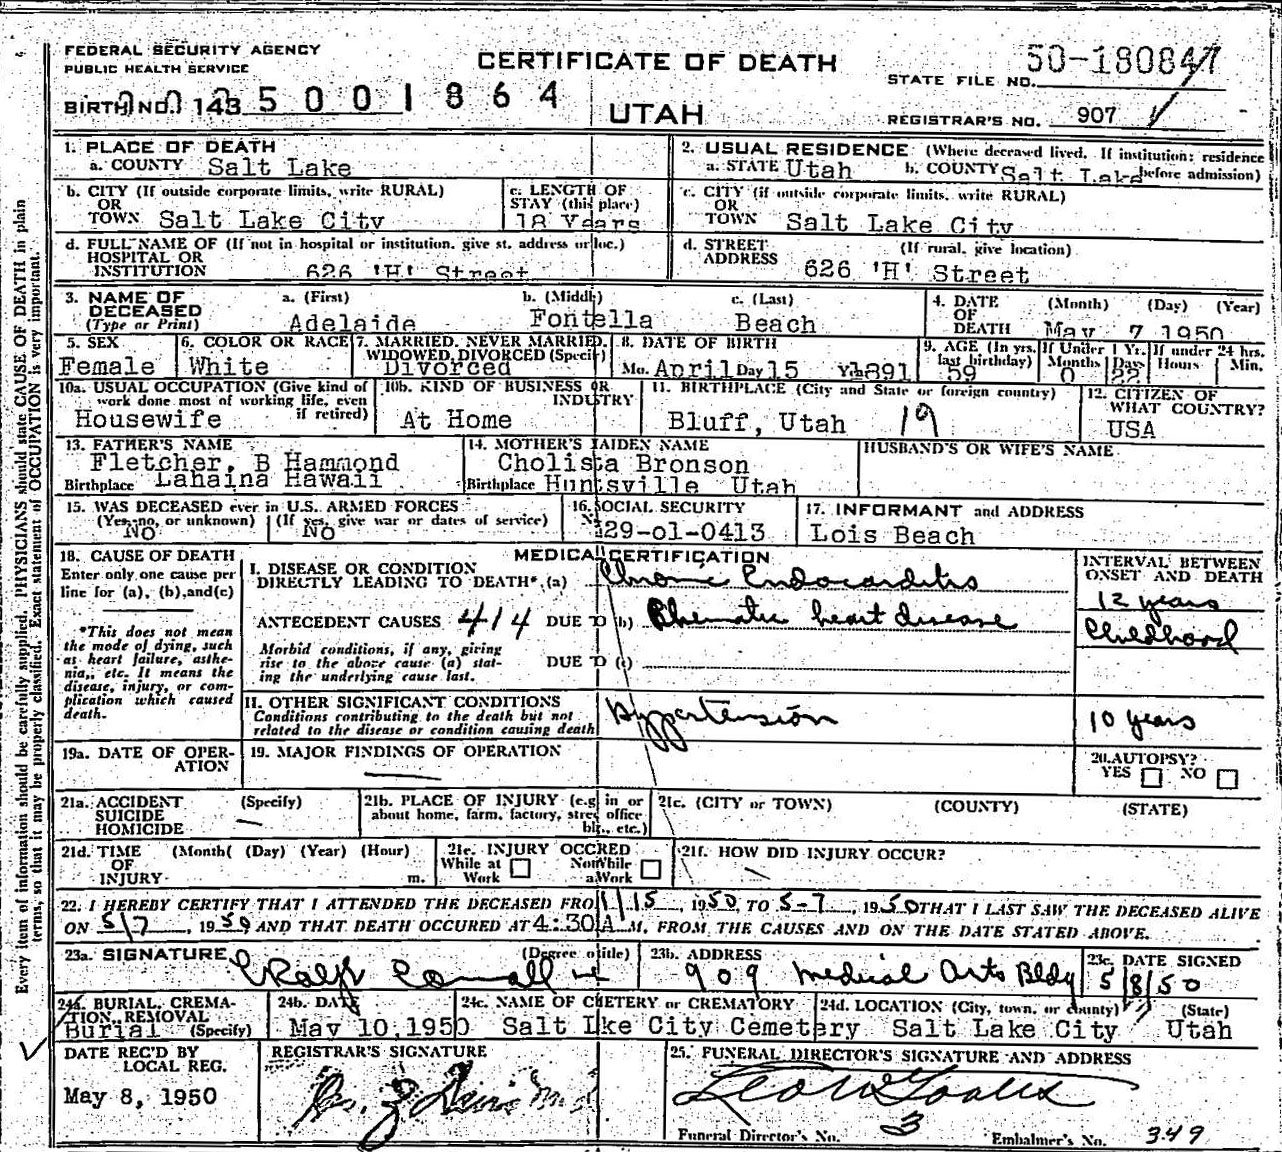 FEDERAL SECURITY AGENCY
PUBLIC HEALTH SERVICE
CERTIFICATE OF DEATH
UTAH
STATE FILE NO. 50-180847
BIRTH NO. 143 5001864
REGISTRAR'S NO. 907
1. PLACE OF DEATH
a. COUNTY Salt Lake
2. USUAL RESIDENCE (Where deceased lived. If institution: residence before admission)
a. STATE Utah b. COUNTY Salt Lake
b. CITY (If outside corporate limits, write RURAL)
OR
TOWN Salt Lake City
c. LENGTH OF
STAY (this place)
18 Years
c. CITY (if outside corporate limits, write RURAL)
OR
TOWN Salt Lake City
d. FULL NAME OF (If not in hospital or institution, give st. address or loc.)
HOSPITAL OR
INSTITUTION 626 'H' Street
d. STREET (If rural, give location)
ADDRESS 626 'H' Street
3. NAME OF DECEASED
(Type or Print)
a. (First) b. (Middle) c. (Last)
Adelaide Fontella Beach
4. DATE OF DEATH (Month) (Day) (Year)
May 7 1950
5. SEX
Female
6. COLOR OR RACE
White
7. MARRIED, NEVER MARRIED,
WIDOWED, DIVORCED (Specify)
Divorced
8. DATE OF BIRTH
Mo. April Day 15 Yr. 1891
9. AGE (In yrs. last birthday) 59
If Under 1 Yr. Months 0 Days 22
If under 24 hrs. Hours Min.
10a. USUAL OCCUPATION (Give kind of
work done most of working life, even
if retired)
Housewife
10b. KIND OF BUSINESS OR
INDUSTRY
At Home
11. BIRTHPLACE (City and State or foreign country)
Bluff, Utah 19
12. CITIZEN OF
WHAT COUNTRY?
USA
13. FATHER'S NAME
Fletcher, B Hammond
Birthplace Lahaina Hawaii
14. MOTHER'S MAIDEN NAME
Cholista Bronson
Birthplace Huntsville Utah
HUSBAND'S OR WIFE'S NAME
15. WAS DECEASED ever in U.S. ARMED FORCES
(Yes, no, or unknown) (If yes, give war or dates of service)
No No
16. SOCIAL SECURITY
29-01-0413
17. INFORMANT and ADDRESS
Lois Beach
18. CAUSE OF DEATH
Enter only one cause per
line for (a), (b), and (c)
*This does not mean
the mode of dying, such
as heart failure, asthe-
nia, etc. It means the
disease, injury, or com-
plication which caused
death.
MEDICAL CERTIFICATION
I. DISEASE OR CONDITION
DIRECTLY LEADING TO DEATH* (a) Chronic Endocarditis
INTERVAL BETWEEN
ONSET AND DEATH
12 years
ANTECEDENT CAUSES 414 DUE TO (b) Rhematic heart disease
Childhood
Morbid conditions, if any, giving
rise to the above cause (a) stat-
ing the underlying cause last.
DUE TO (c)
II. OTHER SIGNIFICANT CONDITIONS
Conditions contributing to the death but not
related to the disease or condition causing death
Hypertension
10 years
19a. DATE OF OPER-
ATION
19. MAJOR FINDINGS OF OPERATION
20. AUTOPSY?
YES NO
21a. ACCIDENT (Specify)
SUICIDE
HOMICIDE
21b. PLACE OF INJURY (e.g. in or
about home, farm, factory, street office
bldg., etc.)
21c. (CITY or TOWN) (COUNTY) (STATE)
21d. TIME (Month( (Day) (Year) (Hour)
OF
INJURY m.
21e. INJURY OCCRED
While at Work Not While at Work
21f. HOW DID INJURY OCCUR?
22. I HEREBY CERTIFY THAT I ATTENDED THE DECEASED FROM 1/15, 1950, TO 5-7, 1950 THAT I LAST SAW THE DECEASED ALIVE
ON 5/7, 1950 AND THAT DEATH OCCURED AT 4:30 A M. FROM THE CAUSES AND ON THE DATE STATED ABOVE.
23a. SIGNATURE (Degree or title)
23b. ADDRESS
909 Medical Arts Bldg
23c. DATE SIGNED
5/8/50
24a. BURIAL, CREMA-
TION, REMOVAL
Burial (Specify)
24b. DATE
May 10, 1950
24c. NAME OF CEMETERY or CREMATORY
Salt Lake City Cemetery
24d. LOCATION (City, town, or county) (State)
Salt Lake City Utah
DATE REC'D BY
LOCAL REG.
May 8, 1950
REGISTRAR'S SIGNATURE
25. FUNERAL DIRECTOR'S SIGNATURE AND ADDRESS
Funeral Director's No. 3 Embalmer's No. 349
Every item of information should be carefully supplied. PHYSICIANS should state CAUSE OF DEATH in plain
terms, so that it may be properly classified. Exact statement of OCCUPATION is very important.